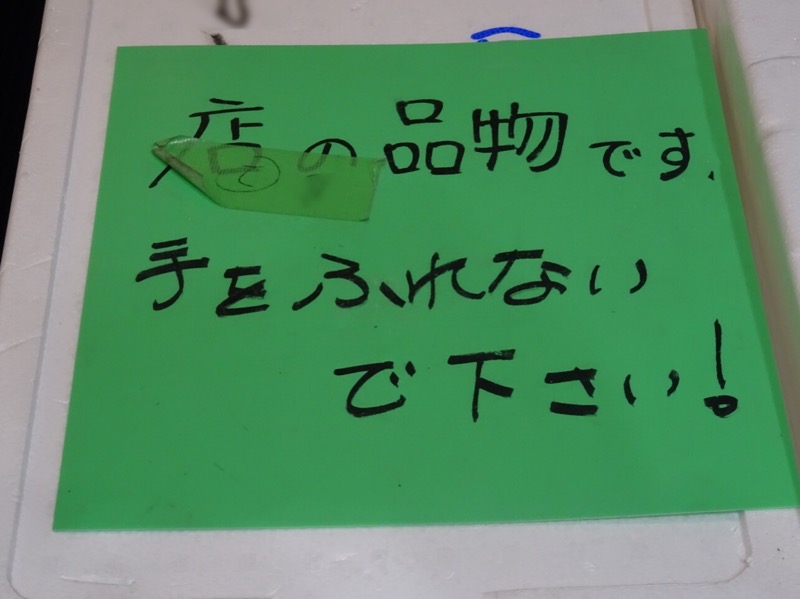 店の品物です.
手をふれない
で下さい!